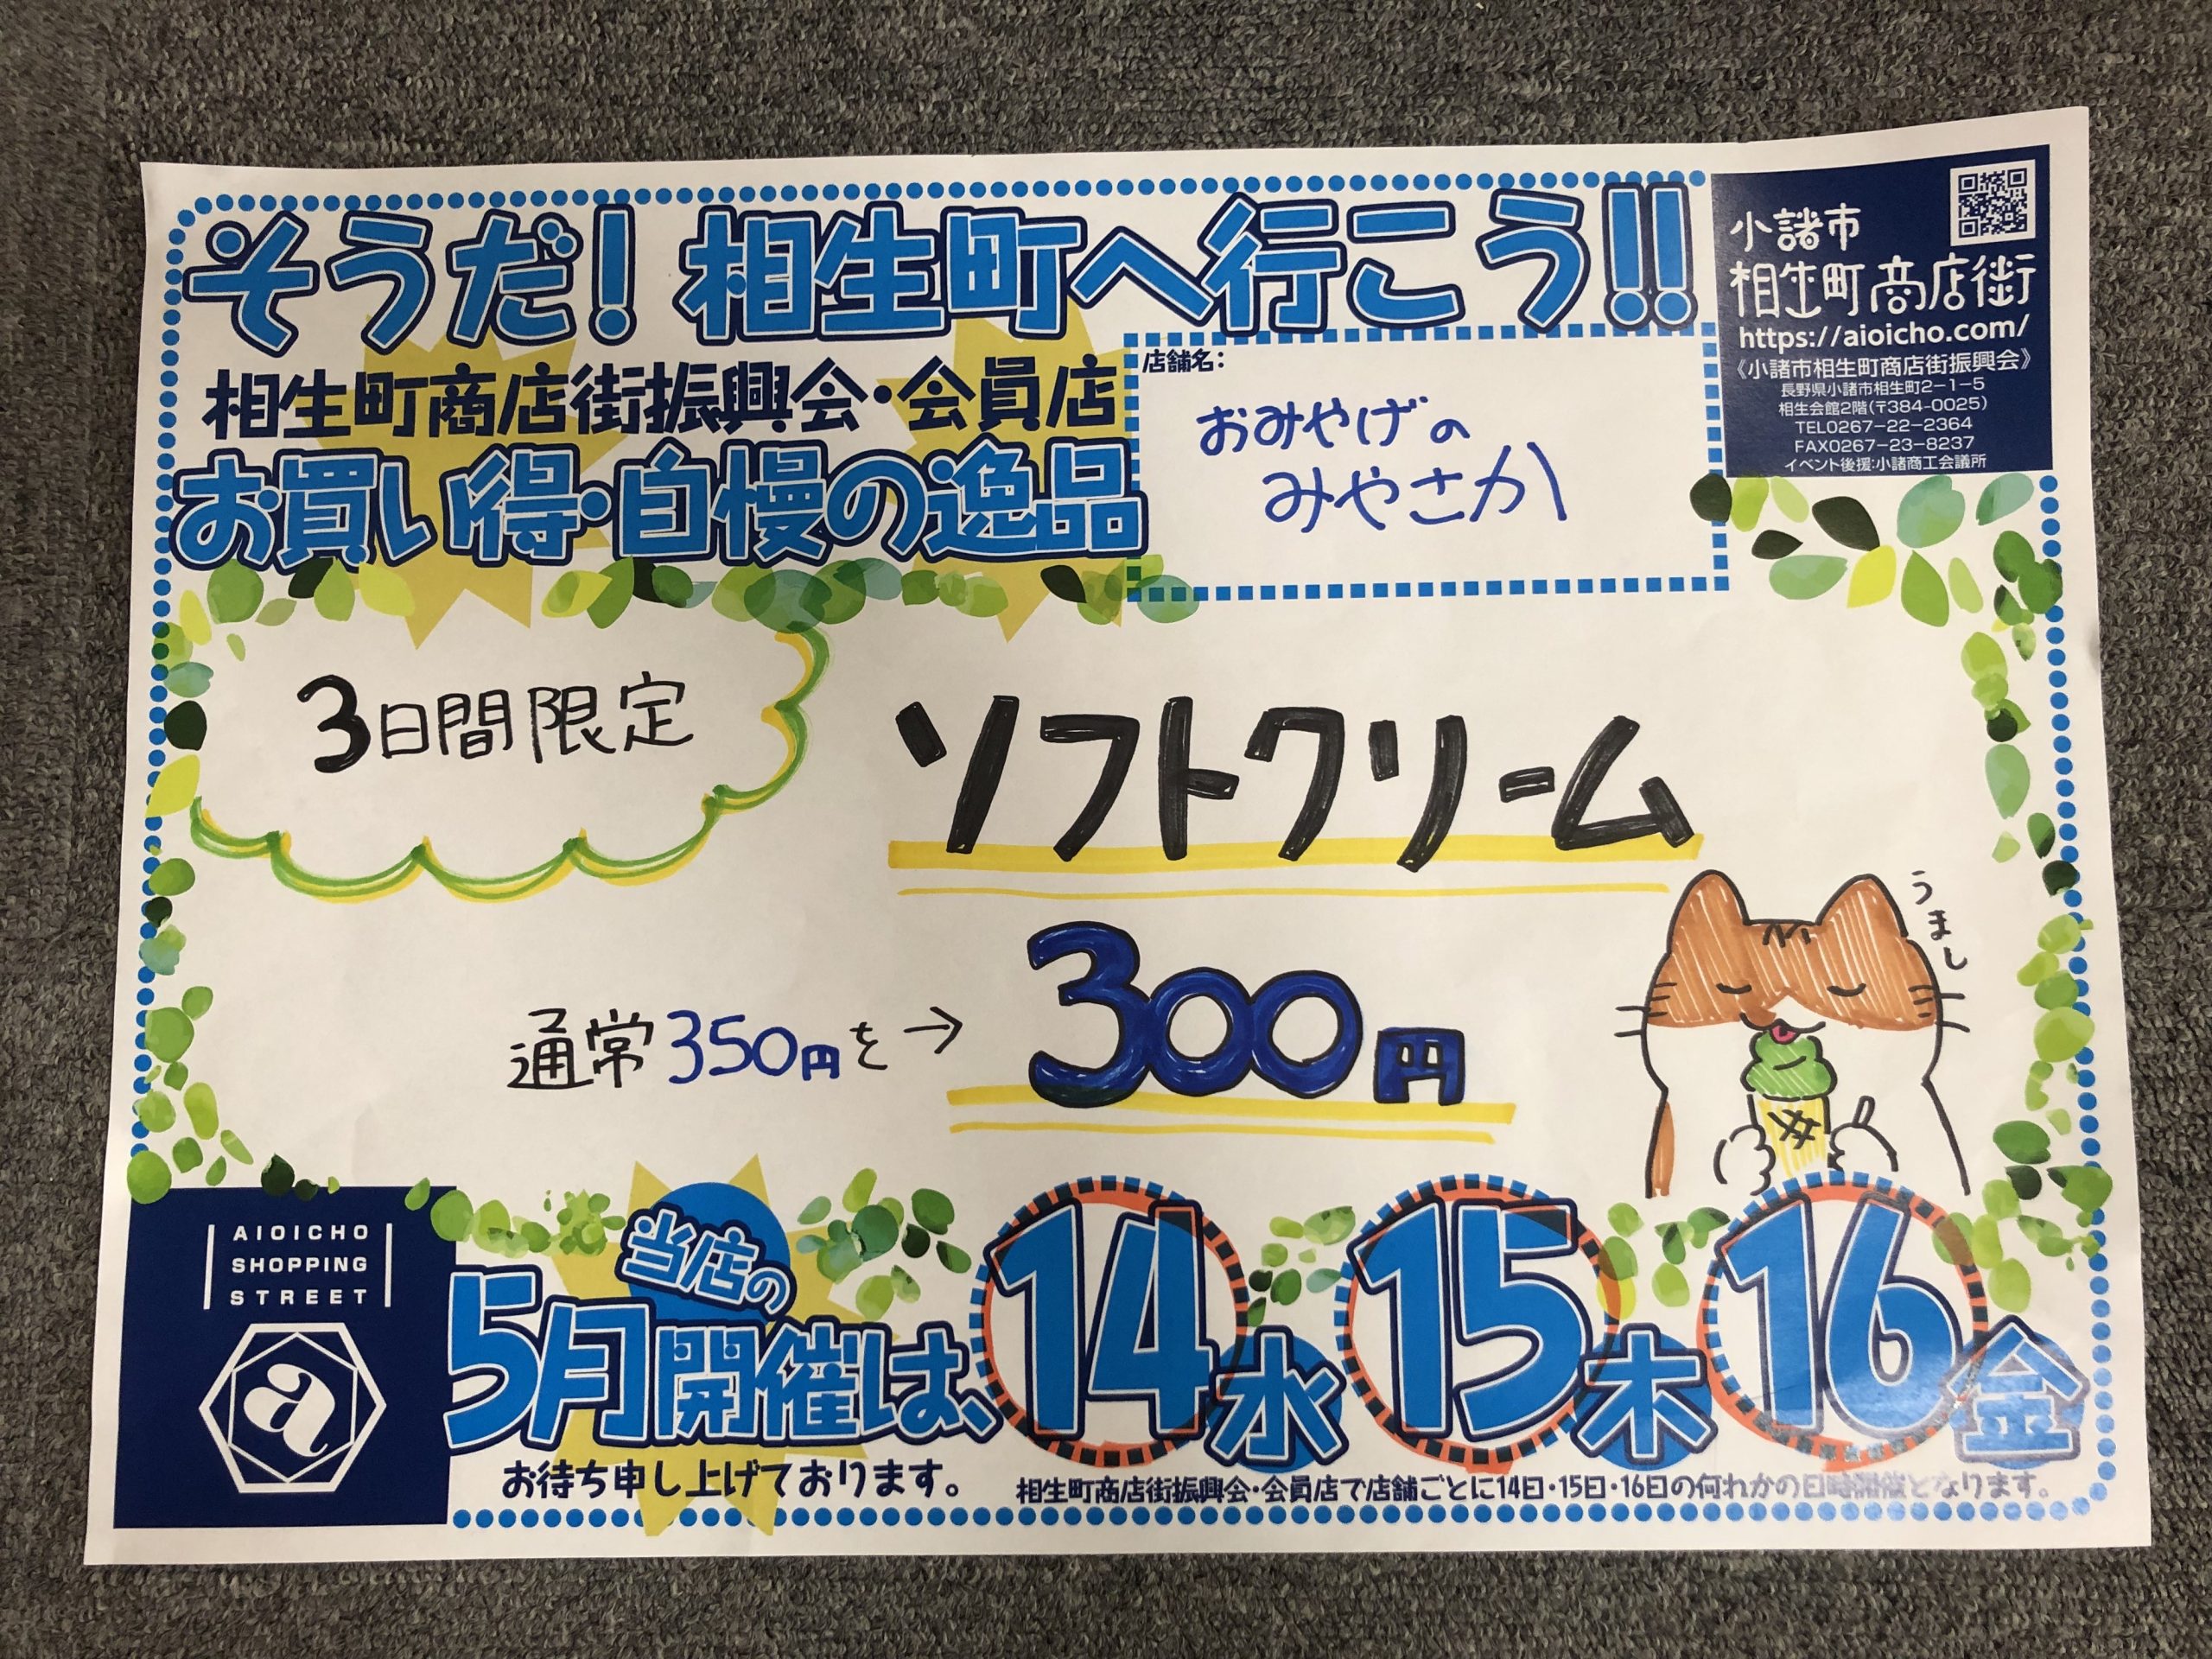 そうだ!相生町へ行こう!!
相生町商店街振興会・会員店
お買い得・自慢の逸品
店舗名:
おみやげの
みやさか
小諸市
相生町商店街
https://aioicho.com/
《小諸市相生町商店街振興会》
長野県小諸市相生町2-1-5
相生会館2階(〒384-0025)
TEL0267-22-2364
FAX0267-23-8237
イベント後援:小諸商工会議所
3日間限定
ソフトクリーム
通常350円を→300円
うまし
AIOICHO
SHOPPING
STREET
a
当店の
5月開催は、14水 15木 16金
お待ち申し上げております。
相生町商店街振興会・会員店で店舗ごとに14日・15日・16日の何れかの日時開催となります。